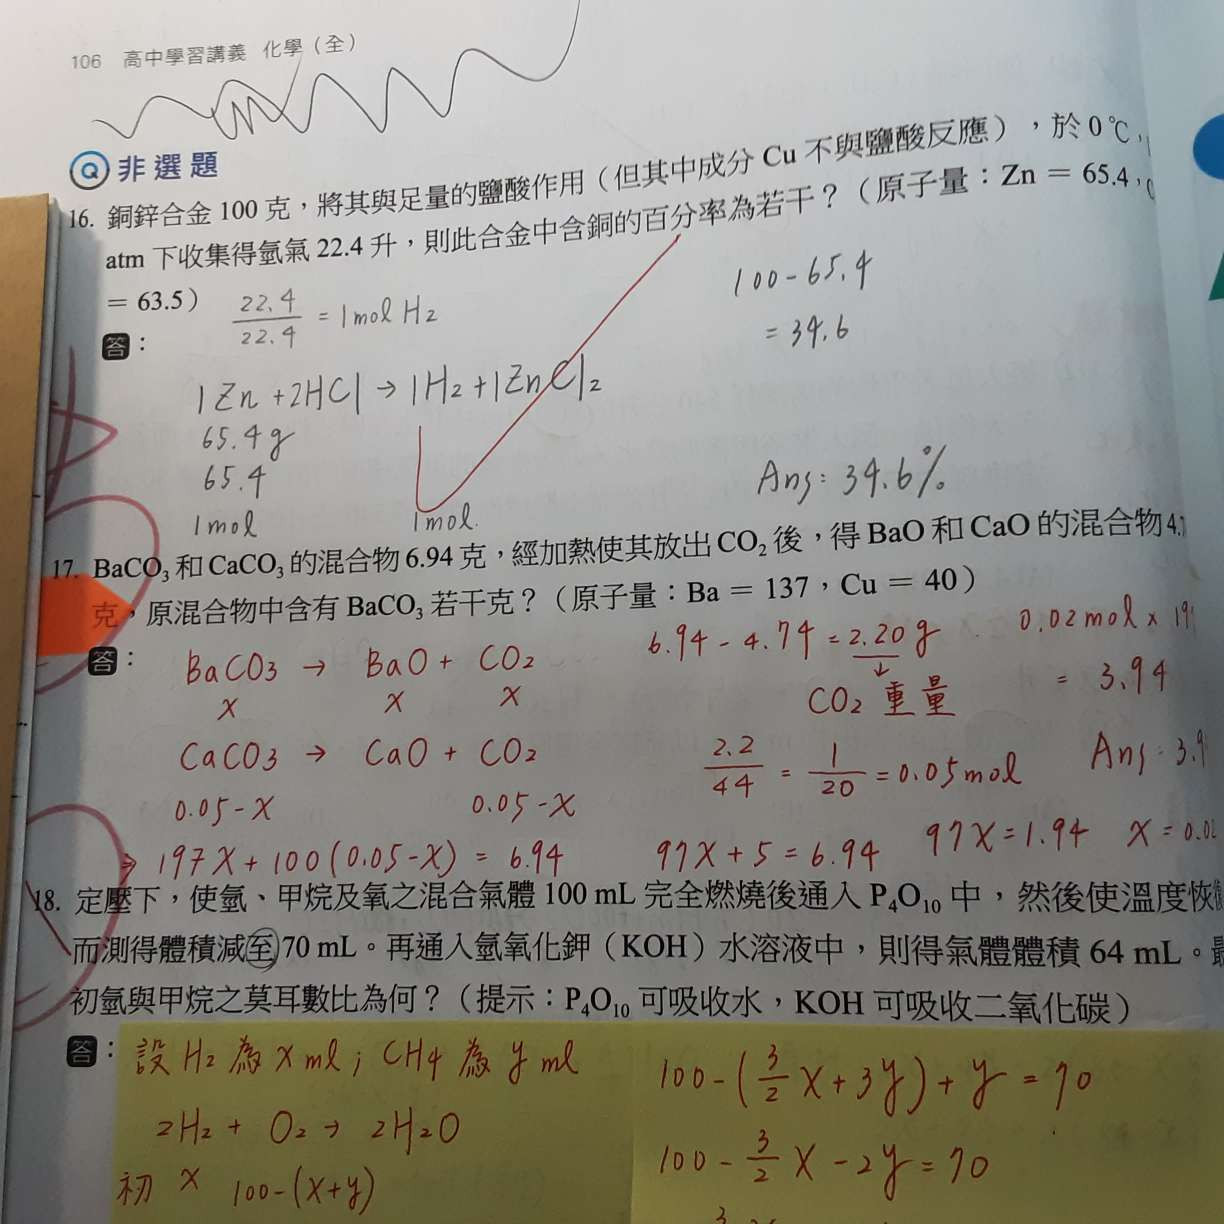 106 高中學習講義 化學(全)
Q 非選題
16. 銅鋅合金 100 克,將其與足量的鹽酸作用(但其中成分 Cu 不與鹽酸反應),於 0 ℃,
atm 下收集得氫氣 22.4 升,則此合金中含銅的百分率為若干?(原子量:Zn = 65.4,
= 63.5)
22.4/22.4 = 1mol H2
100-65.4
= 34.6
答:
1Zn + 2HCl → 1H2 + 1ZnCl2
65.4g
65.4
1mol 1mol.
Ans: 34.6%
17. BaCO₃ 和 CaCO₃ 的混合物 6.94 克,經加熱使其放出 CO₂ 後,得 BaO 和 CaO 的混合物 4.
克,原混合物中含有 BaCO₃ 若干克?(原子量:Ba = 137,Cu = 40)
答:
BaCO3 → BaO + CO2
x x x
CaCO3 → CaO + CO2
0.05-x 0.05-x
6.94 - 4.74 = 2.20g
↓
CO2 重量
2.2/44 = 1/20 = 0.05mol
0.02mol × 19
= 3.94
Ans: 3.9
⇒ 197x + 100(0.05-x) = 6.94 97x + 5 = 6.94 97x = 1.94 x = 0.0
18. 定壓下,使氫、甲烷及氧之混合氣體 100 mL 完全燃燒後通入 P₄O₁₀ 中,然後使溫度恢
而測得體積減至 70 mL。再通入氫氧化鉀(KOH)水溶液中,則得氣體體積 64 mL。
初氫與甲烷之莫耳數比為何?(提示:P₄O₁₀ 可吸收水,KOH 可吸收二氧化碳)
答:
設 H2 為 x ml ; CH4 為 y ml
2H2 + O2 → 2H2O
初 x 100-(x+y)
100-(3/2 x+3y)+y = 70
100 - 3/2 x - 2y = 70